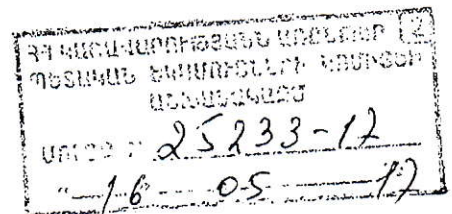 ՀՀ ԿԱՌԱՎԱՐՈՒԹՅԱՆՆ ԱՌԸՆԹԵՐ 2
ՊԵՏԱԿԱՆ ԵԿԱՄՈՒՏՆԵՐԻ ԿՈՄԻՏԵԻ
ԱՇԽԱՏԱԿԱԶՄ
ՄՈՒՏՔ 25233-17
"16" 05 17